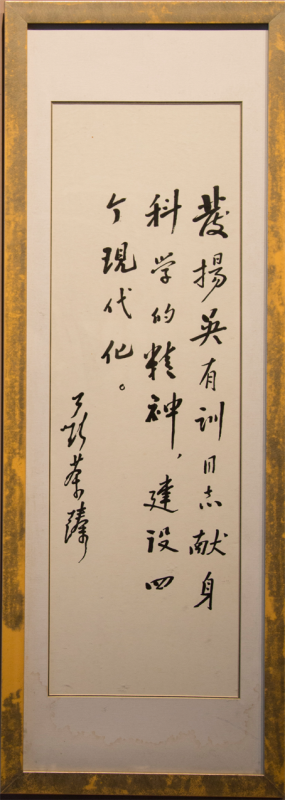 發揚吳有训同志献身
科学的精神，建设四
个現代化。